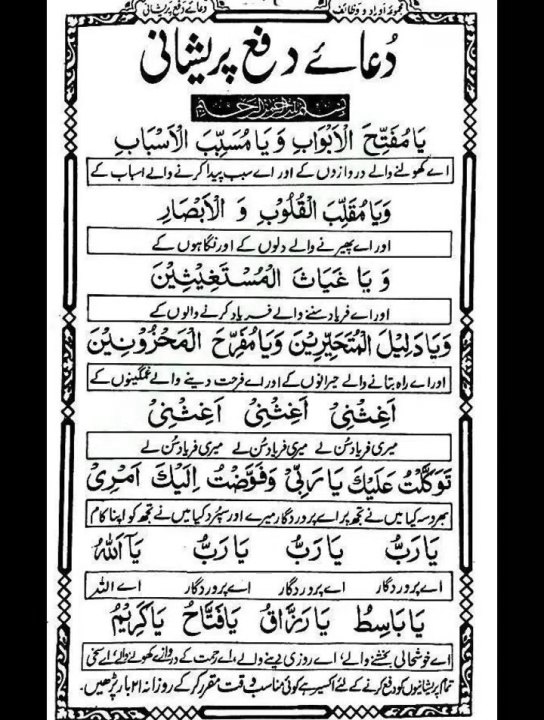 مجموعہ اوراد و وظائف
دعائے دفع پریشانی
دُعائے دفع پریشانی
بسم اللہ الرحمن الرحیم
يَا مُفَتِّحَ الْاَبْوَابِ وَيَا مُسَبِّبَ الْاَسْبَابِ
اے کھولنے والے دروازوں کے اور اے سبب پیدا کرنے والے اسباب کے
وَيَا مُقَلِّبَ الْقُلُوْبِ وَ الْاَبْصَارِ
اور اے پھیرنے والے دلوں کے اور نگاہوں کے
وَ يَا غَيَاثَ الْمُسْتَغِيْثِيْنَ
اور اے فریاد سننے والے فریاد کرنے والوں کے
وَيَا دَلِيْلَ الْمُتَحَيِّرِيْنَ وَيَا مُفَرِّحَ الْمَحْزُوْنِيْنَ
اور اے راہ بتانے والے حیرانوں کے اور اے فرحت دینے والے غمگینوں کے
اَغِثْنِىْ اَغِثْنِىْ اَغِثْنِىْ
میری فریاد سُن لے میری فریاد سُن لے میری فریاد سُن لے
تَوَكَّلْتُ عَلَيْكَ يَا رَبِّىْ وَفَوَّضْتُ اِلَيْكَ اَمْرِىْ
بھروسہ کیا میں نے تجھ پر اے پروردگار میرے اور سپرد کیا میں نے تجھ کو اپنا کام
يَا رَبُّ يَا رَبُّ يَا رَبُّ يَآ اَللهُ
اے پروردگار اے پروردگار اے پروردگار اے اللہ
يَا بَاسِطُ يَا رَزَّاقُ يَا فَتَّاحُ يَا كَرِيْمُ
اے خوشحالی بخشنے والے، اے روزی دینے والے، اے رحمت کے دروازے کھولنے والے، اے سخی
تمام پریشانیوں کو دفع کرنے کے لئے اکسیر ہے کوئی مناسب وقت مقرر کر کے روزانہ ۲۱ بار پڑھیں۔